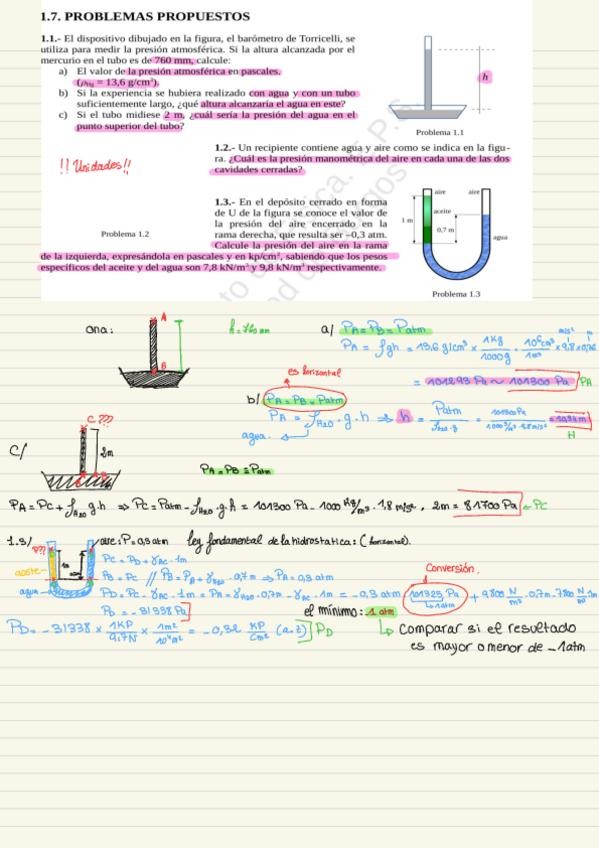 1.7. PROBLEMAS PROPUESTOS
1.1.- El dispositivo dibujado en la figura, el barómetro de Torricelli, se
utiliza para medir la presión atmosférica. Si la altura alcanzada por el
mercurio en el tubo es de 760 mm, calcule:
a) El valor de la presión atmosférica en pascales.
(ρHg = 13,6 g/cm³).
b) Si la experiencia se hubiera realizado con agua y con un tubo
suficientemente largo, ¿qué altura alcanzaría el agua en este?
c) Si el tubo midiese 2 m, ¿cuál sería la presión del agua en el
punto superior del tubo?
h
Problema 1.1
!! Unidades!!
1.2.- Un recipiente contiene agua y aire como se indica en la figu-
ra. ¿Cuál es la presión manométrica del aire en cada una de las dos
cavidades cerradas?
Problema 1.2
1.3.- En el depósito cerrado en forma
de U de la figura se conoce el valor de
la presión del aire encerrado en la
rama derecha, que resulta ser –0,3 atm.
Calcule la presión del aire en la rama
de la izquierda, expresándola en pascales y en kp/cm², sabiendo que los pesos
específicos del aceite y del agua son 7,8 kN/m³ y 9,8 kN/m³ respectivamente.
aire
aire
aceite
1 m
0,7 m
agua
Problema 1.3
A
B
a/ PA = PB = Patm
PA = ρgh = 13,6 g/cm³ × 1Kg/1000g
= 101293 Pa ~ 101300 Pa PA
es horizontal
b/ PA = PB = Patm
PA = ρH2O . g . h ⇒ h = Patm/ρH2O . g
agua
H
c/
C ???
2m
PA = PB = Patm
PA = PC + ρH2O g.h ⇒ PC = Patm - ρH2O g.h = 101300 Pa - 1000 Kg/m³ . 9,8 m/s² . 2m = 81700 Pa ← PC
1.3/
P??
aceite
agua
aire: P = 0,3 atm
ley fundamental de la hidrostatica: (horizontal).
PC = PD + γac . 1m
PB = PC // PB = PA + γH2O . 0,7m ⇒ PA = 0,3 atm
PD = PC - γac . 1m = PA + γH2O . 0,7m - γac . 1m = -0,3 atm 101323 Pa/1atm + 9800 N/m³ . 0,7m - 7800 N/m³ 1m
Conversión.
PD = -31338 Pa
el mínimo: -1 atm
PD = -31338 × 1KP/9,7N × 1m²/10⁴ m² = -0,32 KP/cm² PD
Comparar si el resultado
es mayor o menor de -1atm